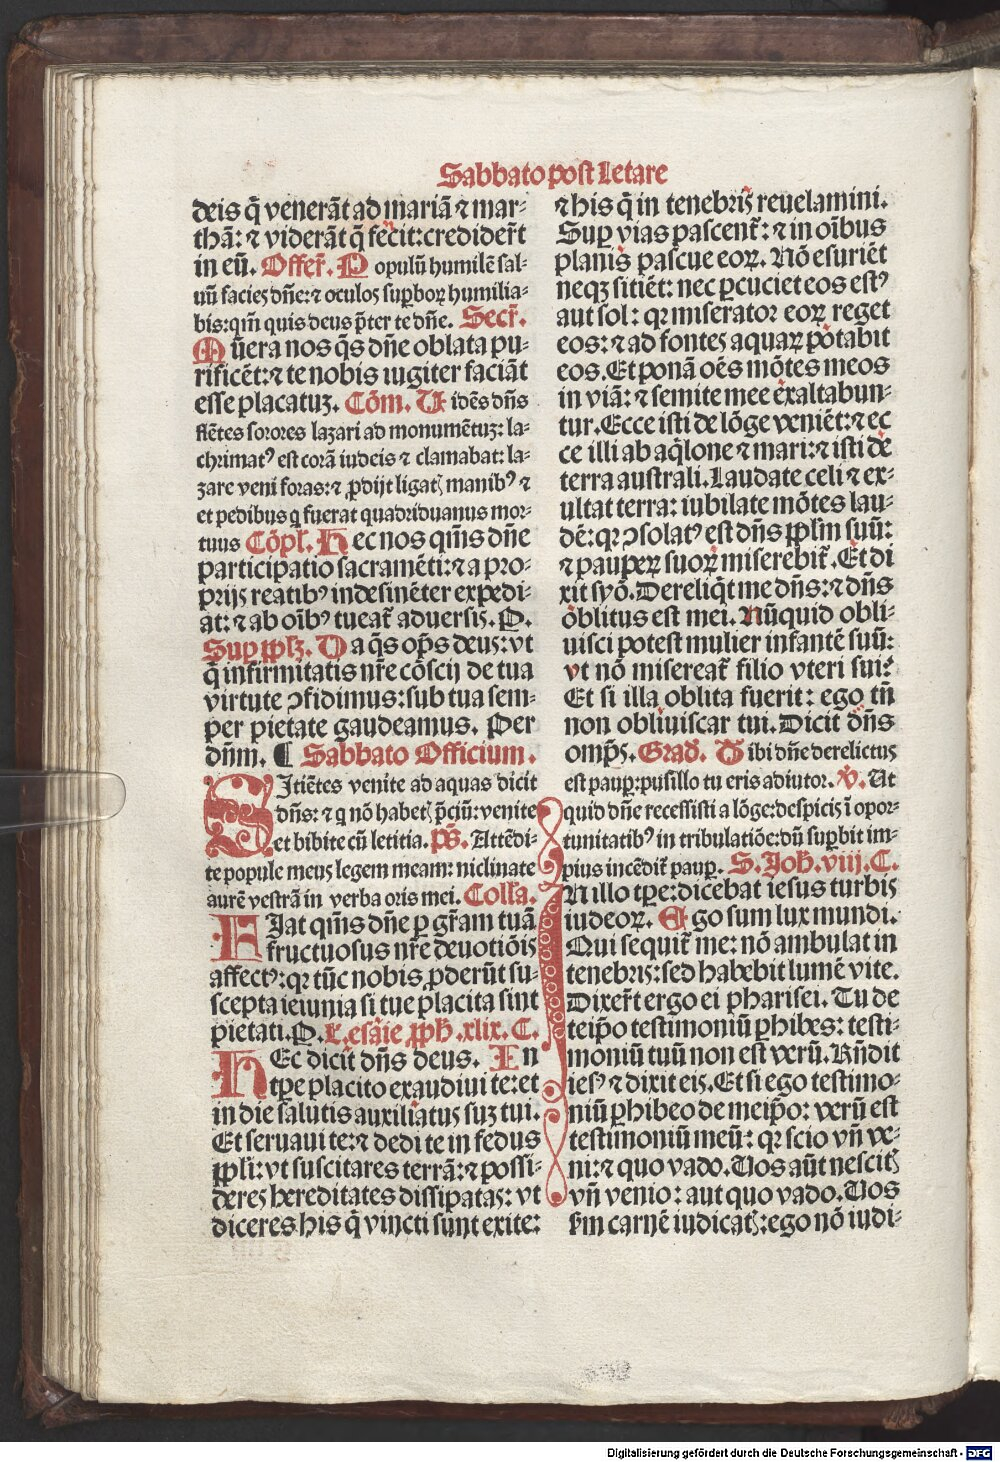 Sabbato post Letare
deis q̄ venerāt ad mariā ⁊ mar-
thā: ⁊ viderāt q̄ fecit: crediderūt
in eū. Offer̄. Populū humilē sal-
uū facies dn̄e: ⁊ oculos suꝑboꝝ humilia-
bis: qm̄ quis deus p̄ter te dn̄e. Secr̄.
Mūera nos q̄s dn̄e oblata pu-
rificēt: ⁊ te nobis iugiter faciāt
esse placatuꝫ. Cōm. Uidēs dn̄s
flētes sorores lazari ad monumētuꝫ: la-
chrimatꝰ est corā iudeis ⁊ clamabat: la-
zare veni foras: ⁊ ꝓdijt ligatꝭ manibꝰ ⁊
et pedibus q fuerat quadriduanus mor-
tuus Cōpl̄. Hec nos qm̄s dn̄e
participatio sacramēti: ⁊ a pro-
prijs reatibꝰ indesinēter expedi-
at: ⁊ ab oībꝰ tueat̄ aduersis. P.
Suꝑ ppl̄ꝫ. Da q̄s op̄s deus: vt
q̄ infirmitatis nr̄e cōscij de tua
virtute ꝯfidimus: sub tua sem-
per pietate gaudeamus. Per
dn̄m. ¶ Sabbato Officium.
SItiētes venite ad aquas dicit
dn̄s: ⁊ q nō habetꝭ p̄ciū: venite
et bibite cū letitia. p̄s. Attēdi-
te popule meus legem meam: niclinate
aurē vestrā in verba oris mei. Coll̄a.
FIat qm̄s dn̄e ꝑ gr̄am tuā
fructuosus nr̄e deuotiōis
affectꝰ: qꝛ tūc nobis ꝓderūt su-
scepta ieiunia si tue placita sint
pietati. P. L. esāie ꝓph. xlix. C.
HEc dicit dn̄s deus. In
tp̄e placito exaudiui te: et
in die salutis auxiliatus suꝫ tui.
Et seruaui te: ⁊ dedi te in fedus
ppl̄i: vt suscitares terrā: ⁊ possi-
deres hereditates dissipatas: vt
diceres his q̄ vincti sunt exite:
⁊ his q̄ in tenebris reuelamini.
Suꝑ vias pascent̄: ⁊ in oībus
planis pascue eoꝝ. Nō esuriēt
neqꝫ sitiēt: nec ꝑcuciet eos estꝰ
aut sol: qꝛ miserator eoꝝ reget
eos: ⁊ ad fontes aquaꝝ potabit
eos. Et ponā oēs mōtes meos
in viā: ⁊ semite mee exaltabun-
tur. Ecce isti de lōge veniēt: ⁊ ec
ce illi ab aq̄lone ⁊ mari: ⁊ isti de
terra australi. Laudate celi ⁊ ex-
ultat terra: iubilate mōtes lau-
dē: qꝛ ꝯsolatꝰ est dn̄s ppl̄m suū:
⁊ pauꝑeꝝ suoꝝ miserebit̄. Et di
xit syō. Dereliq̄t me dn̄s: ⁊ dn̄s
oblitus est mei. Nūquid obli-
uisci potest mulier infantē suū:
vt nō misereat̄ filio vteri sui:
Et si illa oblita fuerit: ego tn̄
non obliuiscar tui. Dicit dn̄s
omp̄s. Grad̄. Tibi dn̄e derelictus
est pauꝑ: pusillo tu eris adiutor. ℣. Ut
quid dn̄e recessisti a lōge: despicis ī opor-
tunitatibꝰ in tribulatiōe: dū suꝑbit im-
pius incēdit̄ pauꝑ. S. Joh. viij. C.
IN illo tp̄e: dicebat iesus turbis
iudeoꝝ. Ego sum lux mundi.
Qui sequit̄ me: nō ambulat in
tenebris: sed habebit lumē vite.
Dixer̄t ergo ei pharisei. Tu de
teip̄o testimoniū ꝑhibes: testi-
moniū tuū non est verū. Rn̄dit
iesꝰ ⁊ dixit eis. Et si ego testimo-
niū ꝑhibeo de meip̄o: verū est
testimoniū meū: qꝛ scio vn̄ ve-
ni: ⁊ quo vado. Uos aūt nescitꝭ
vn̄ venio: aut quo vado. Uos
s̄m carnē iudicatꝭ: ego nō iudi-
Digitalisierung gefördert durch die Deutsche Forschungsgemeinschaft - DFG